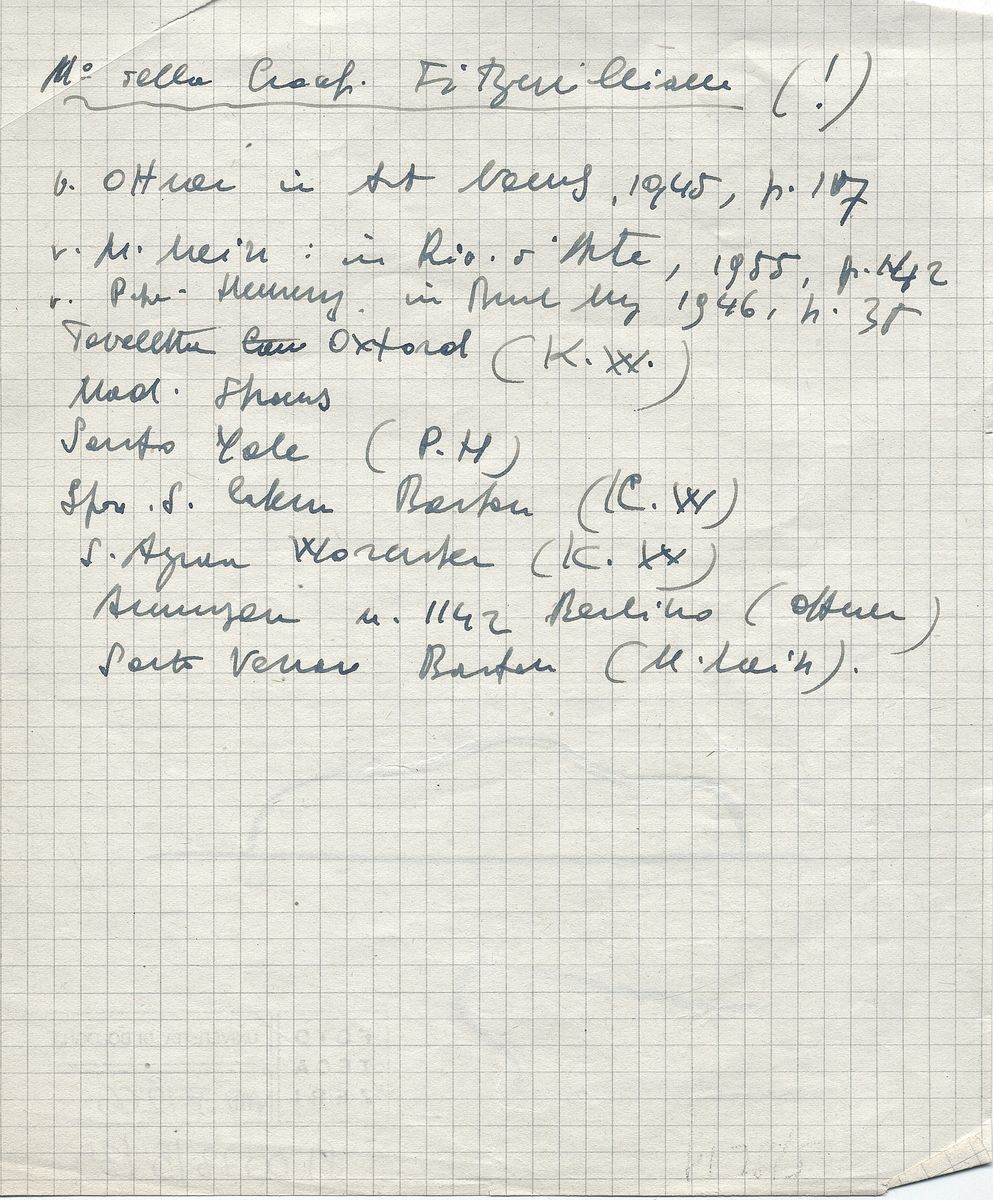 Mo della Crocif. Fitzwilliam (!)
v. Offner in Art 1945, p. 107
v. M. Meiss : in Riv. d'Arte, 1955, p. 142
v. Ph. Hendy in Burl Mag 1946, p. 35
Tavoletta Oxford (K. W.)
Mad. Straus
Santo Yale (P. H)
Spos. S. Caterin Boston (K. W)
S. Agnese Worcester (K. W)
Annunzian n. 1142 Berlino (Offner)
Santo Vescovo Boston (M. Meiss).